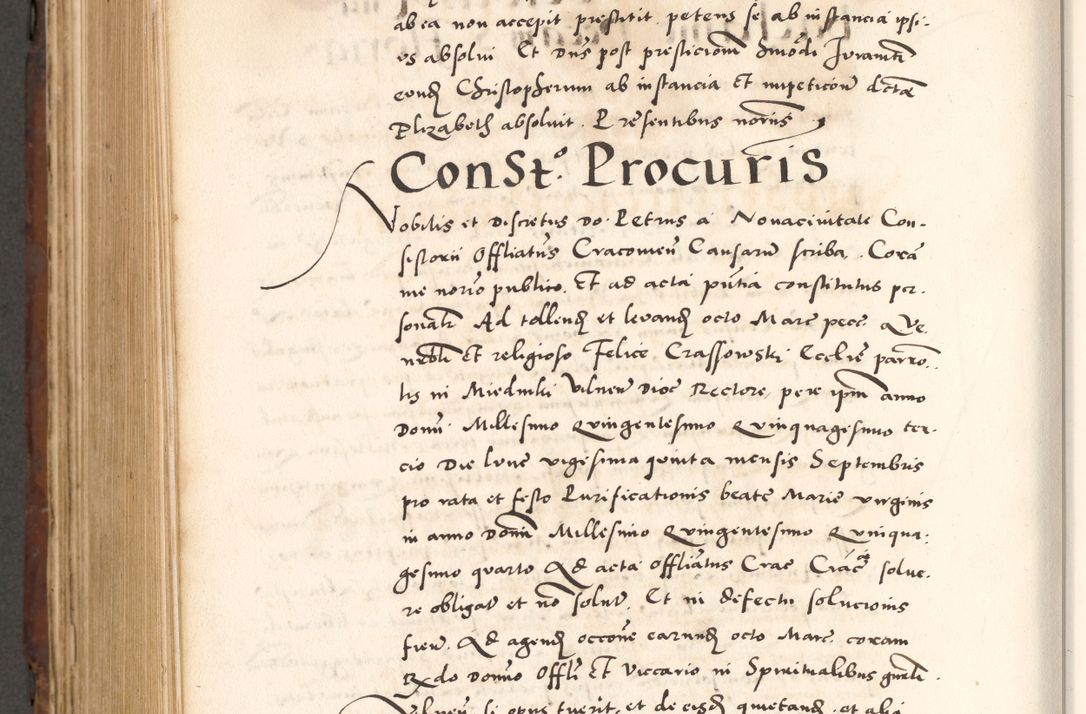 ab ea non accepit prestitit. petens se ab instancia ipsi-
us absolvi Et Dns post presticionem hmodi Juramti
eundem Christopherum ab instancia et impeticone dctae
Elizabeth absolvit. Presentibus noriis
ConSt.o Procuris
Nobilis et Discretus Do. Petrus a Novacivitate Con-
sistorii Offliatus Cracovien Causarum scriba. Cora
me norio publico. Et ad acta pntia constitutus per-
sonalr Ad tollend et levand octo Marc pecc a Ve
nebli Et religioso Felice Crassowski Ecclie parro.
lis in Miedniki Vilnen Dioc Rectore, pere ipm anno
Domi Millesimo Quingentesimo Quinquagesimo ter-
cio Die lune vigesima quinta mensis Septembris
pro rata et festo Purificationis beate Marie virginis
in anno Domi Millesimo Quingentesimo Quinqua-
gesimo quarto Ad acta Offliatus Crac Crac solve-
re obligat et no solut. Et in defectu solucionis
fien. Ad agend occone earund octo Marc. coram
Rdo Domno Offli Et Viccario in Spiritualibus gnali.
Vilnen si opus fuerit, et de eisd quietand. et alia